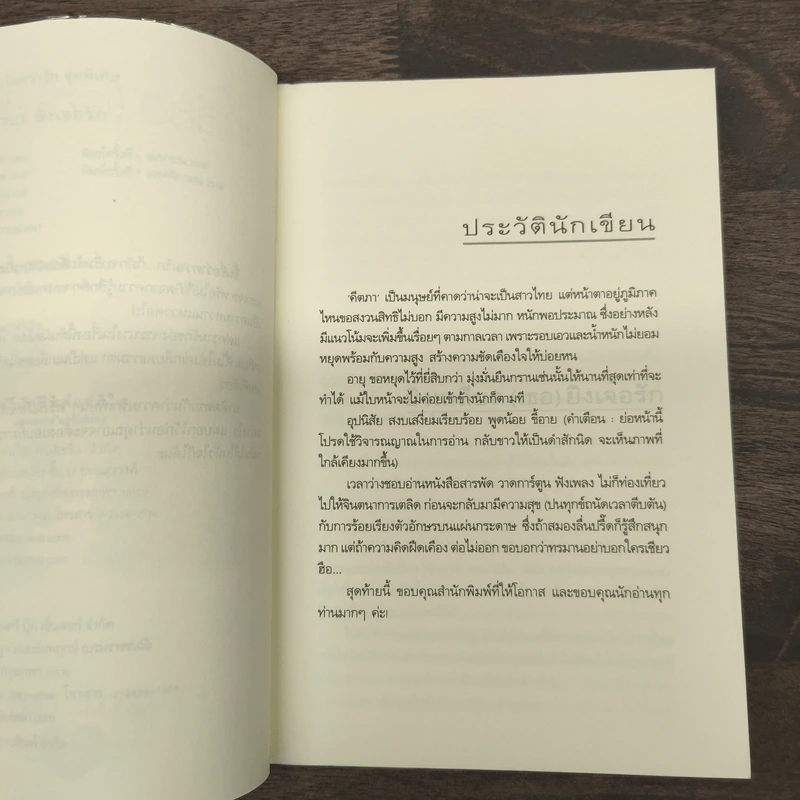 ประวัตินักเขียน
'คีตภา' เป็นมนุษย์ที่คาดว่าน่าจะเป็นสาวไทย แต่หน้าตาอยู่ภูมิภาค
ไหนขอสงวนสิทธิไม่บอก มีความสูงไม่มาก หนักพอประมาณ ซึ่งอย่างหลัง
มีแนวโน้มจะเพิ่มขึ้นเรื่อยๆ ตามกาลเวลา เพราะรอบเอวและน้ำหนักไม่ยอม
หยุดพร้อมกับความสูง สร้างความขัดเคืองใจให้บ่อยหน
อายุ ขอหยุดไว้ที่ยี่สิบกว่า มุ่งมั่นยืนกรานเช่นนั้นให้นานที่สุดเท่าที่จะ
ทำได้ แม้ใบหน้าจะไม่ค่อยเข้าข้างนักก็ตามที
อุปนิสัย สงบเสงี่ยมเรียบร้อย พูดน้อย ขี้อาย (คำเตือน : ย่อหน้านี้
โปรดใช้วิจารณญาณในการอ่าน กลับขาวให้เป็นดำสักนิด จะเห็นภาพที่
ใกล้เคียงมากขึ้น)
เวลาว่างชอบอ่านหนังสือสารพัด วาดการ์ตูน ฟังเพลง ไม่ก็ท่องเที่ยว
ไปให้จินตนาการเตลิด ก่อนจะกลับมามีความสุข (ปนทุกข์ถนัดเวลาตีบตัน)
กับการร้อยเรียงตัวอักษรบนแผ่นกระดาษ ซึ่งถ้าสมองลื่นปรื๊ดก็รู้สึกสนุก
มาก แต่ถ้าความคิดฝืดเคือง ต่อไม่ออก ขอบอกว่าทรมานอย่าบอกใครเชียว
ฮือ...
สุดท้ายนี้ ขอบคุณสำนักพิมพ์ที่ให้โอกาส และขอบคุณนักอ่านทุก
ท่านมากๆ ค่ะ!